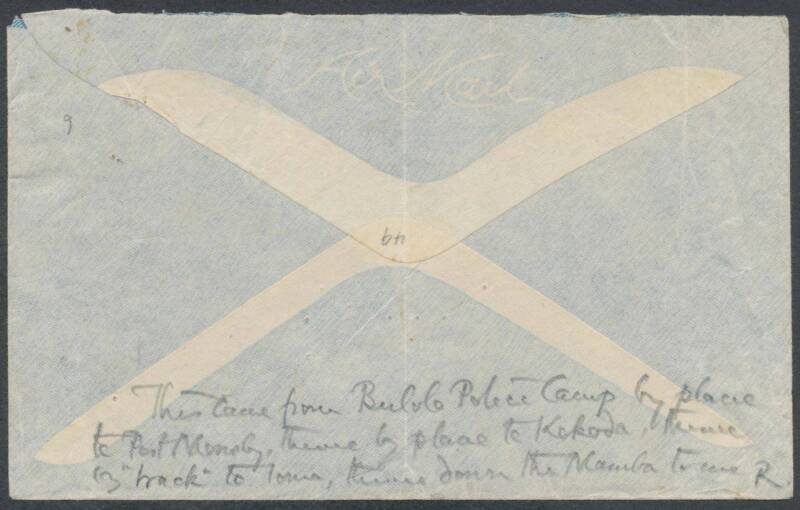 Air Mail
9
49
This came from Bulolo Police Camp by plane
to Port Moresby, thence by plane to Kokoda, thence
by "track" to Ioma, thence down the Mamba to me R.